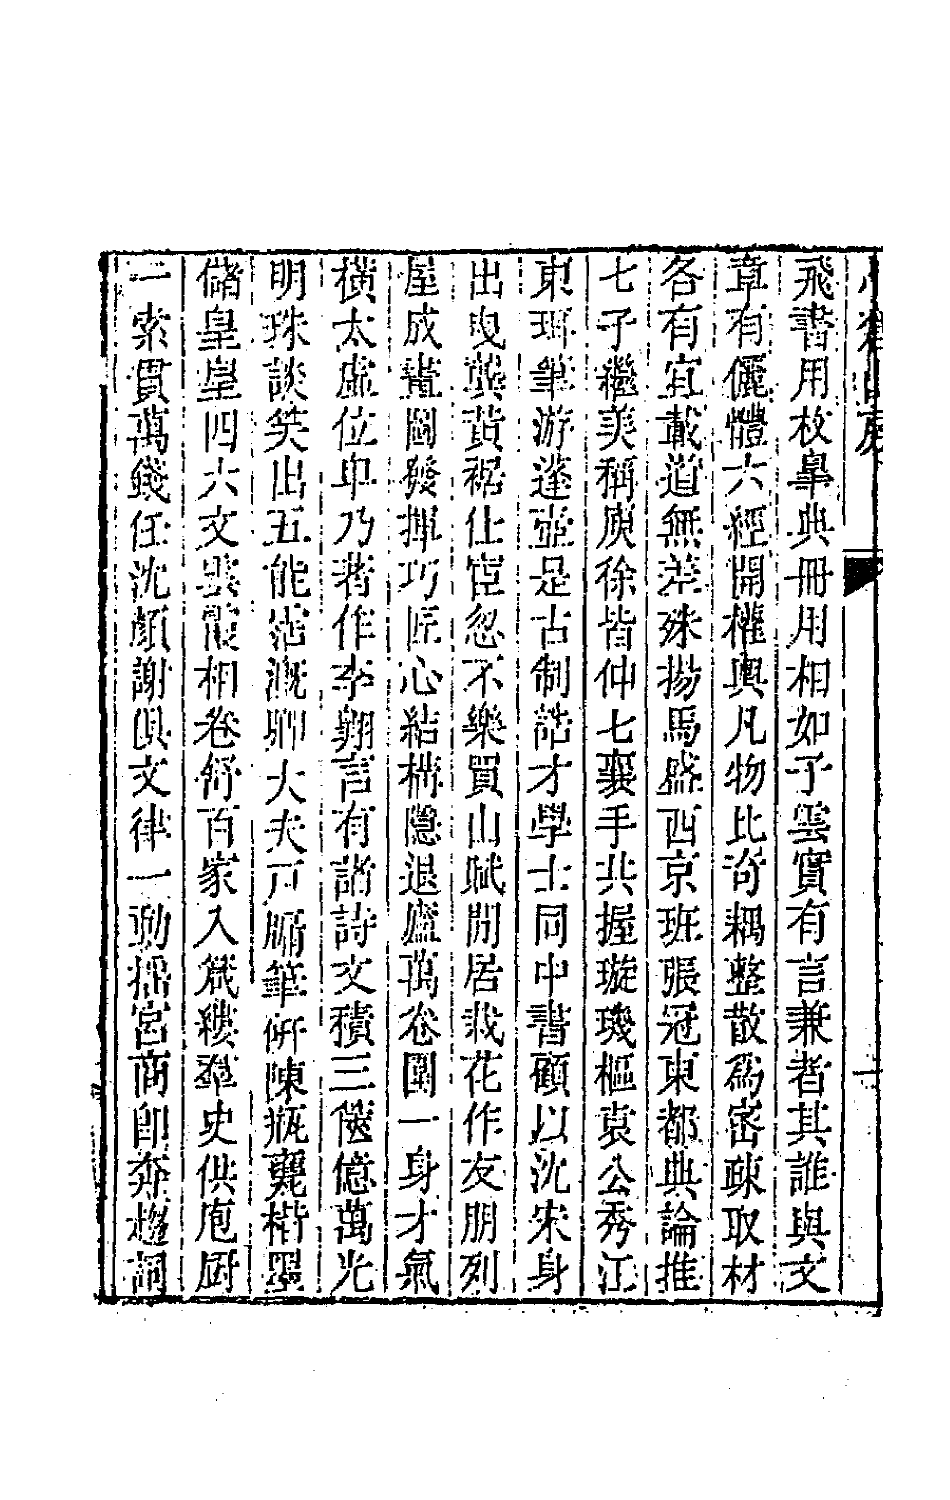 小倉山房
一
飛書用枚臯典冊用相如子雲實有言兼者其誰與文
章有儷體六經開權輿凡物比奇耦整散爲密疎取材
各有宜載道無差殊揚馬盛西京班張冠東都典論推
七子繼美稱庾徐皆伸七襄手共握璇璣樞袁公秀江
東珥筆游蓬壺是古制誥才學士同中書顧以沈宋身
出曳龔黃裾仕宦忽不樂買山賦閒居栽花作友朋列
屋成畫圖發揮巧匠心結構隱退廬萬卷圍一身才氣
橫太虛位卑乃著作李翺言有諸詩文積三篋億萬光
明珠談笑出五能溉卿大夫戸牖筆硏陳甁甕楷墨
儲皇皇四六文雲霞相卷舒百家入箴縷羣史供庖厨
一索貫萬錢任沈顏謝俱文律一動搖宮商卽奔趨詞